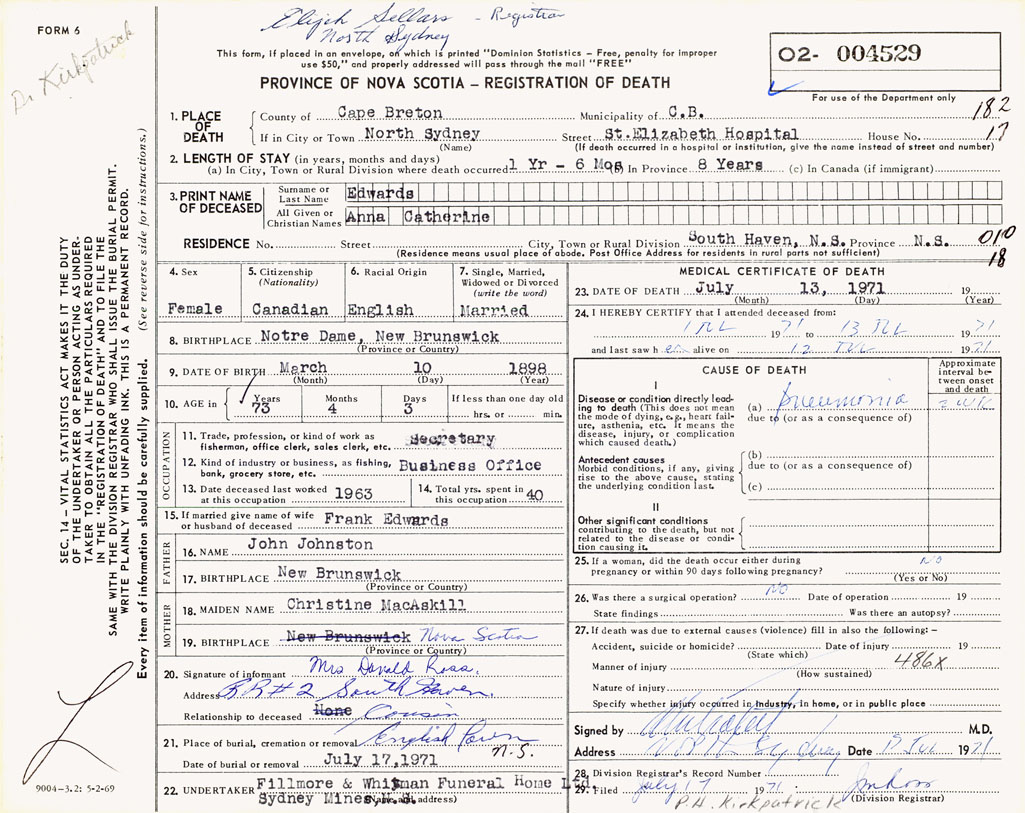 Elijah Sellars - Registrar
North Sydney
FORM 6
Dr Kirkpatrick
This form, if placed in an envelope, on which is printed "Dominion Statistics – Free, penalty for improper
use $50," and properly addressed will pass through the mail "FREE"
O2- 004529
PROVINCE OF NOVA SCOTIA – REGISTRATION OF DEATH
For use of the Department only
182
17
1. PLACE OF DEATH
County of Cape Breton Municipality of C.B.
If in City or Town North Sydney Street St.Elizabeth Hospital House No.
(Name) (If death occurred in a hospital or institution, give the name instead of street and number)
2. LENGTH OF STAY (in years, months and days)
(a) In City, Town or Rural Division where death occurred 1 Yr - 6 Mos (b) In Province 8 Years (c) In Canada (if immigrant)
3. PRINT NAME OF DECEASED
Surname or Last Name Edwards
All Given or Christian Names Anna Catherine
RESIDENCE No. Street City, Town or Rural Division South Haven, N.S. Province N.S. 010
(Residence means usual place of abode. Post Office Address for residents in rural parts not sufficient) 18
SEC. 14 – VITAL STATISTICS ACT MAKES IT THE DUTY
OF THE UNDERTAKER OR PERSON ACTING AS UNDER-
TAKER TO OBTAIN ALL THE PARTICULARS REQUIRED
IN THE "REGISTRATION OF DEATH" AND TO FILE THE
SAME WITH THE DIVISION REGISTRAR WHO SHALL ISSUE THE BURIAL PERMIT.
WRITE PLAINLY WITH UNFADING INK. THIS IS A PERMANENT RECORD.
Every item of information should be carefully supplied. (See reverse side for instructions.)
4. Sex Female
5. Citizenship (Nationality) Canadian
6. Racial Origin English
7. Single, Married, Widowed or Divorced (write the word) Married
8. BIRTHPLACE Notre Dame, New Brunswick
(Province or Country)
9. DATE OF BIRTH March 10 1898
(Month) (Day) (Year)
10. AGE in Years 73 Months 4 Days 3 If less than one day old
hrs. or min.
OCCUPATION
11. Trade, profession, or kind of work as
fisherman, office clerk, sales clerk, etc. Secretary
12. Kind of industry or business, as fishing,
bank, grocery store, etc. Business Office
13. Date deceased last worked
at this occupation 1963
14. Total yrs. spent in
this occupation 40
15. If married give name of wife
or husband of deceased Frank Edwards
FATHER
16. NAME John Johnston
17. BIRTHPLACE New Brunswick
(Province or Country)
MOTHER
18. MAIDEN NAME Christine MacAskill
19. BIRTHPLACE New Brunswick Nova Scotia
(Province or Country)
20. Signature of informant Mrs Donald Ross.
Address RR#2 South Haven,
Relationship to deceased None Cousin
21. Place of burial, cremation or removal English Town
N.S.
Date of burial or removal July 17,1971
22. UNDERTAKER Fillmore & Whitman Funeral Home Ltd
Sydney Mines N.S.
(Name and address)
9004-3.2: 5-2-69
MEDICAL CERTIFICATE OF DEATH
23. DATE OF DEATH July 13, 1971 19
(Month) (Day) (Year)
24. I HEREBY CERTIFY that I attended deceased from:
1 JUL 1971 to 13 JUL 1971
and last saw her alive on 12 JUL 1971
CAUSE OF DEATH
Approximate interval between onset and death
I
Disease or condition directly lead-
ing to death (This does not mean
the mode of dying, e.g., heart fail-
ure, asthenia, etc. It means the
disease, injury, or complication
which caused death.)
(a) pneumonia 2 wk
due to (or as a consequence of)
Antecedent causes
Morbid conditions, if any, giving
rise to the above cause, stating
the underlying condition last.
(b)
due to (or as a consequence of)
(c)
II
Other significant conditions
contributing to the death, but not
related to the disease or condi-
tion causing it.
25. If a woman, did the death occur either during
pregnancy or within 90 days following pregnancy? NO
(Yes or No)
26. Was there a surgical operation? NO Date of operation 19
State findings Was there an autopsy?
27. If death was due to external causes (violence) fill in also the following: –
Accident, suicide or homicide? Date of injury 19
(State which)
Manner of injury 486X
(How sustained)
Nature of injury
Specify whether injury occurred in Industry, in home, or in public place
Signed by M.D.
Address Sydney Date Jul 1971
28. Division Registrar's Record Number
29. Filed July 17 1971
(Division Registrar)
P.H. Kirkpatrick